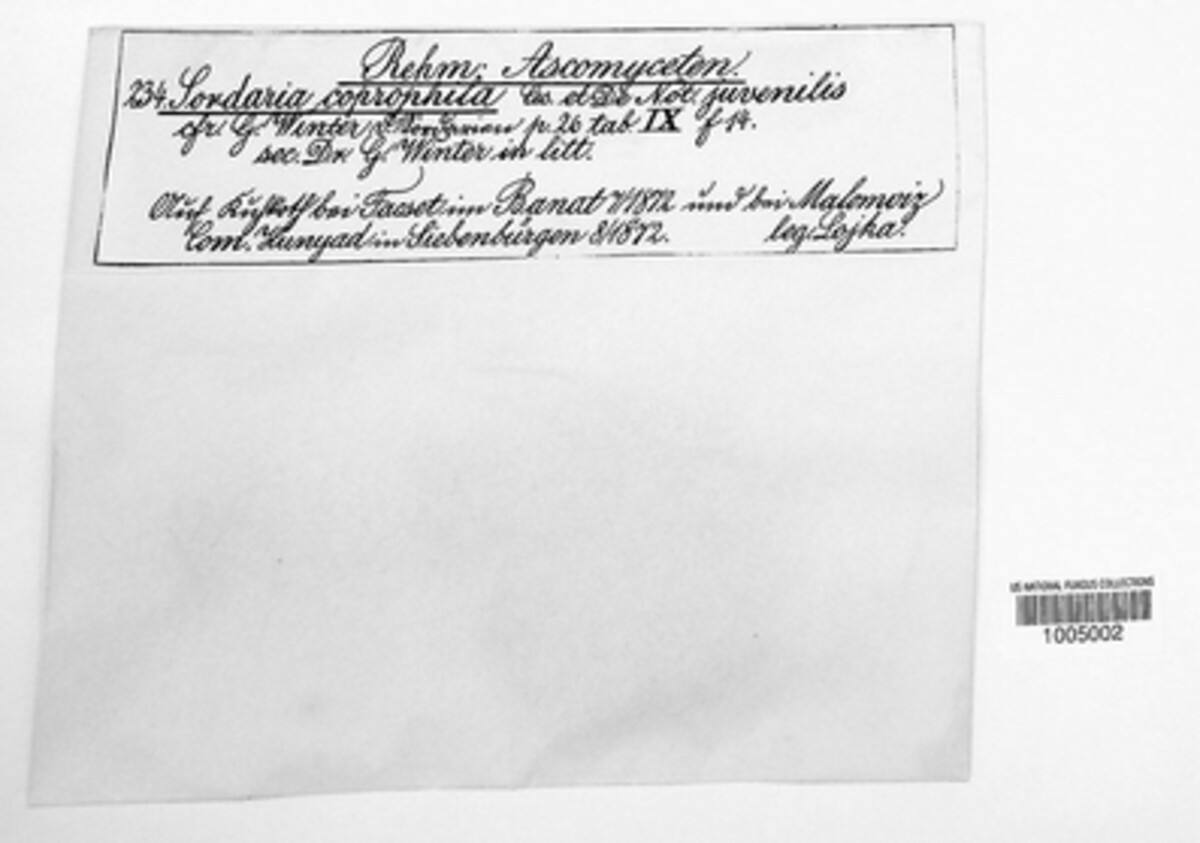 Rehm: Ascomyceten.
234. Sordaria coprophila Ces. et De Not. juvenilis
cfr. G. Winter d. Sordarien p. 26 tab IX f 14.
sec. Dr. G. Winter in litt.
Auf Kuhkoth bei Facset im Banat 7/1872 und bei Malomviz
Com. Hunyad in Siebenbürgen 8/1872. leg. Lojka.
US NATIONAL FUNGUS COLLECTIONS
1005002